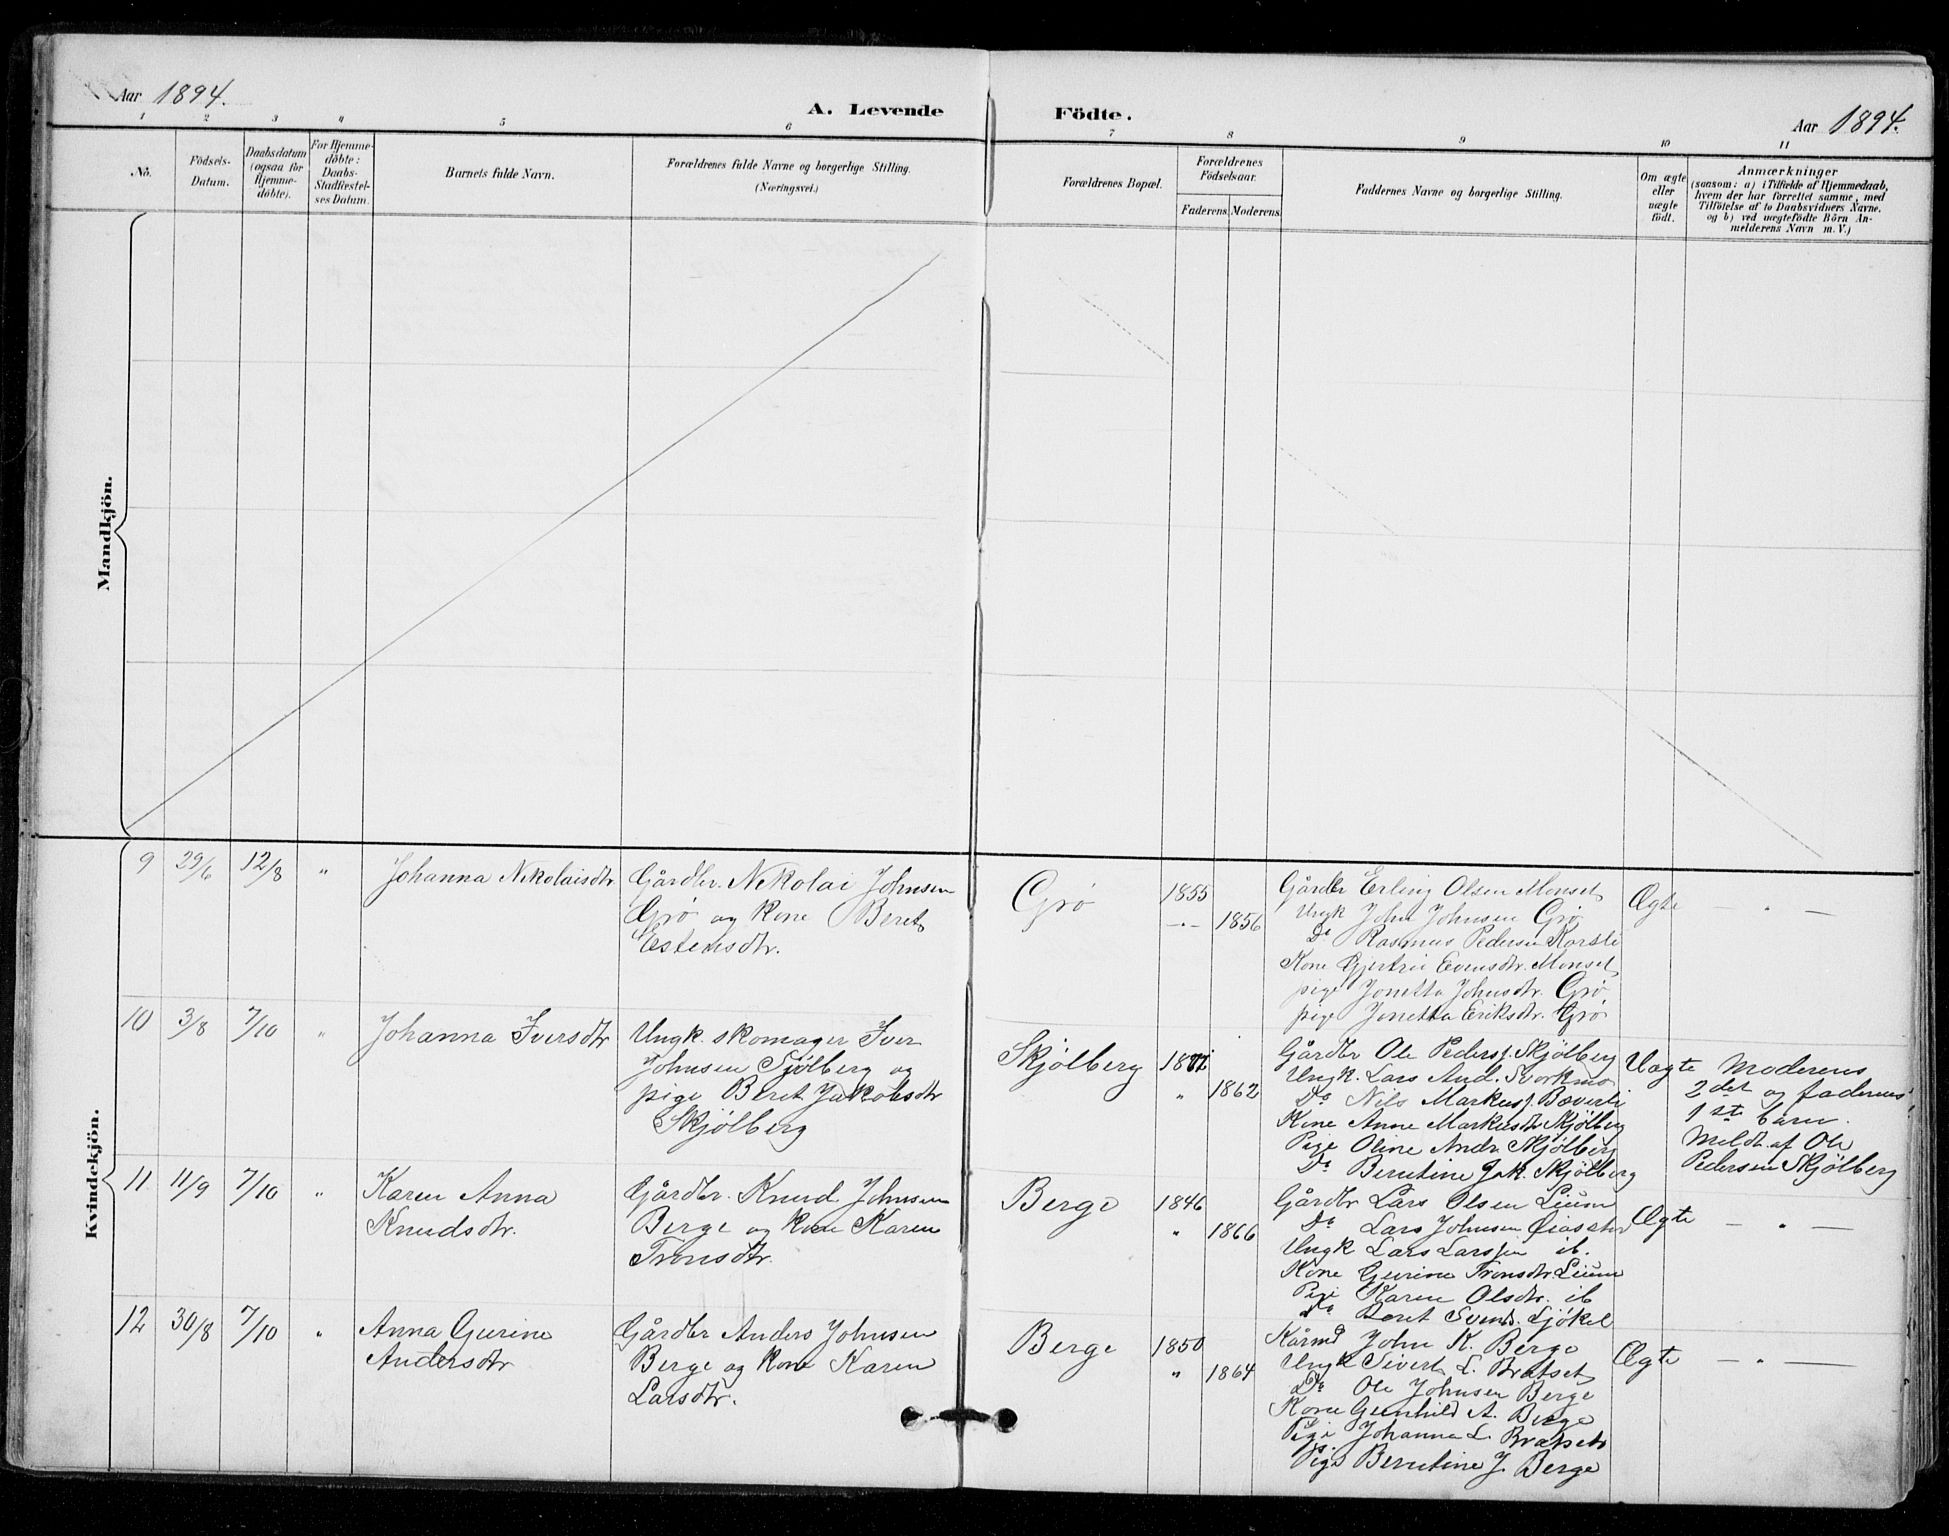 Aar 1894.
A. Levende Födte.
Aar 1894.
1 2 3 4 5 6 7 8 9 10 11
No.
Födsels-
Datum.
Daabsdatum
(ogsaa for
Hjemme-
döbte).
For Hjemme-
döbte:
Daabs-
Stadfæstel-
ses Datum.
Barnets fulde Navn.
Forældrenes fulde Navne og borgerlige Stilling.
(Næringsvei.)
Forældrenes Bopæl.
Forældrenes
Födselsaar.
Faderens. Moderens.
Faddernes Navne og borgerlige Stilling.
Om ægte
eller
uægte
födt.
Anmærkninger
(saasom: a) i Tilfælde af Hjemmedaab,
hvem der har forrettet samme, med
Tilföielse af to Daabsvidners Navne,
og b) ved uægtefödte Börn An-
melderens Navn m. V.)
Mandkjön.
Kvindekjön.
9 29/6 12/8 " Johanna Nikolaisdtr
Gårdbr. Nikolai Johnsen
Grø og kone Beret
Estensdtr.
Grø
1855
-"- 1856
Gårdbr Erling Olsen Monset
Ungk John Johnsen Grø
Do Rasmus Pedersen Karsti
Kone Gjertrú Evensdtr. Monset
pige Jonetta Johnsdtr. Grø
pige Jonetta Eriksdtr. Grø
Ægte
— " —
10 3/8 7/10 " Johanna Iversdtr
Ungk. skomager Iver
Johnsen Sjølberg og
pige Beret Jakobsdtr
Skjølberg
Skjølberg
" 1862
Gårdbr Ole Pedersf. Skjølberg
Ungk. Lars And. Svorkmo
Do Nils Markusf. Bæverti
Kone Anne Markusdtr Skjølberg
Pige Oline Andr. Skjølberg
Do Berntine Jak. Skjølberg
Uægte
Moderens
2det og faderens
1ste barn.
Meldt af Ole
Pedersen Skjølberg
11 11/9 7/10 " Karen Anna
Knudsdtr.
Gårdbr. Knud Johnsen
Berge og kone Karen
Tronsdtr.
Berge
1846
" 1866
Gårdbr Lars Olsen Lium
Do Lars Johnsen
Ungk Lars Larssen ib.
Kone Gurine Tronsdtr. Lium
Pige Karen Olsdtr. ib
Do Beret Svends.
Ægte
— " —
12 30/8 7/10 " Anna Gurine
Andersdtr
Gårdbr Anders Johnsen
Berge og kone Karen
Larsdtr.
Berge
1850
" 1864
Kårmd John K. Berge
Ungk Sivert L. Bratset
Do Ole Johnsen Berge
Kone Gunhild A. Berge
Pige Johanna L. Bratset
Pige Berntine J. Berge
Ægte
— " —